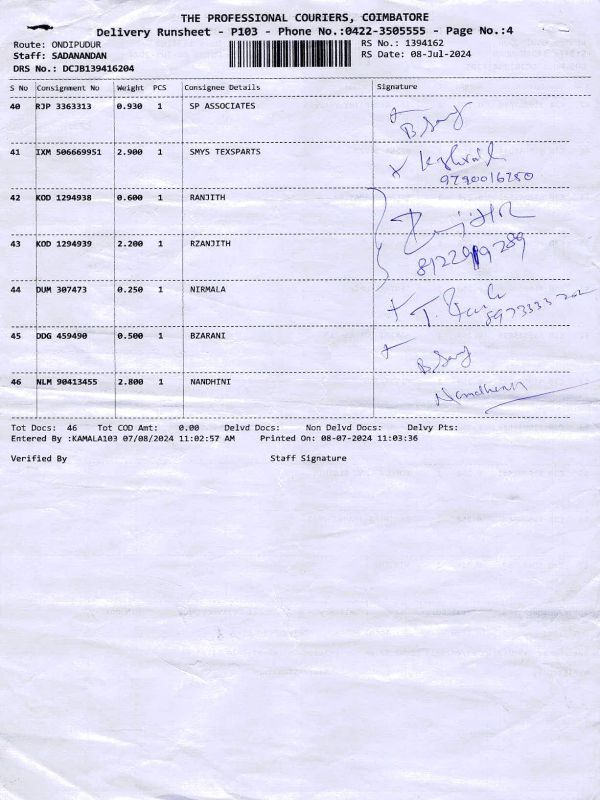 THE PROFESSIONAL COURIERS, COIMBATORE
Delivery Runsheet - P103 - Phone No.:0422-3505555 - Page No.:4
Route: ONDIPUDUR RS No.: 1394162
Staff: SADANANDAN RS Date: 08-Jul-2024
DRS No.: DCJB139416204
S No Consignment No Weight PCS Consignee Details Signature
40 RJP 3363313 0.930 1 SP ASSOCIATES
41 IXM 506669951 2.900 1 SMYS TEXSPARTS
9790016280
42 KOD 1294938 0.600 1 RANJITH
43 KOD 1294939 2.200 1 RZANJITH
44 DUM 307473 0.250 1 NIRMALA
45 DDG 459490 0.500 1 BZARANI
46 NLM 90413455 2.800 1 NANDHINI Nandhini
Tot Docs: 46 Tot COD Amt: 0.00 Delvd Docs: Non Delvd Docs: Delvy Pts:
Entered By :KAMALA103 07/08/2024 11:02:57 AM Printed On: 08-07-2024 11:03:36
Verified By Staff Signature